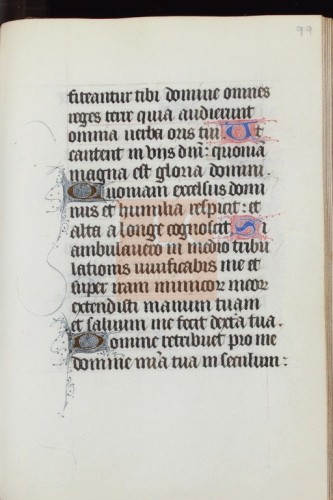 99
fiteantur tibi domine omnes
reges terr quia audierunt
omnia verba oris tui Ut
cantent in viis dni: quonia
magna est gloria domini.
Quoniam excelsus domi
nus et humilia respicit: et
alta a longe cognoscit Si
ambulavero in medio tribu
lationis vivificabis me et
super iram inimicor meor
extendisti manum tuam
et salvum me fecit dextra tua.
Domine retribuet pro me
domine mia tua in seculum: